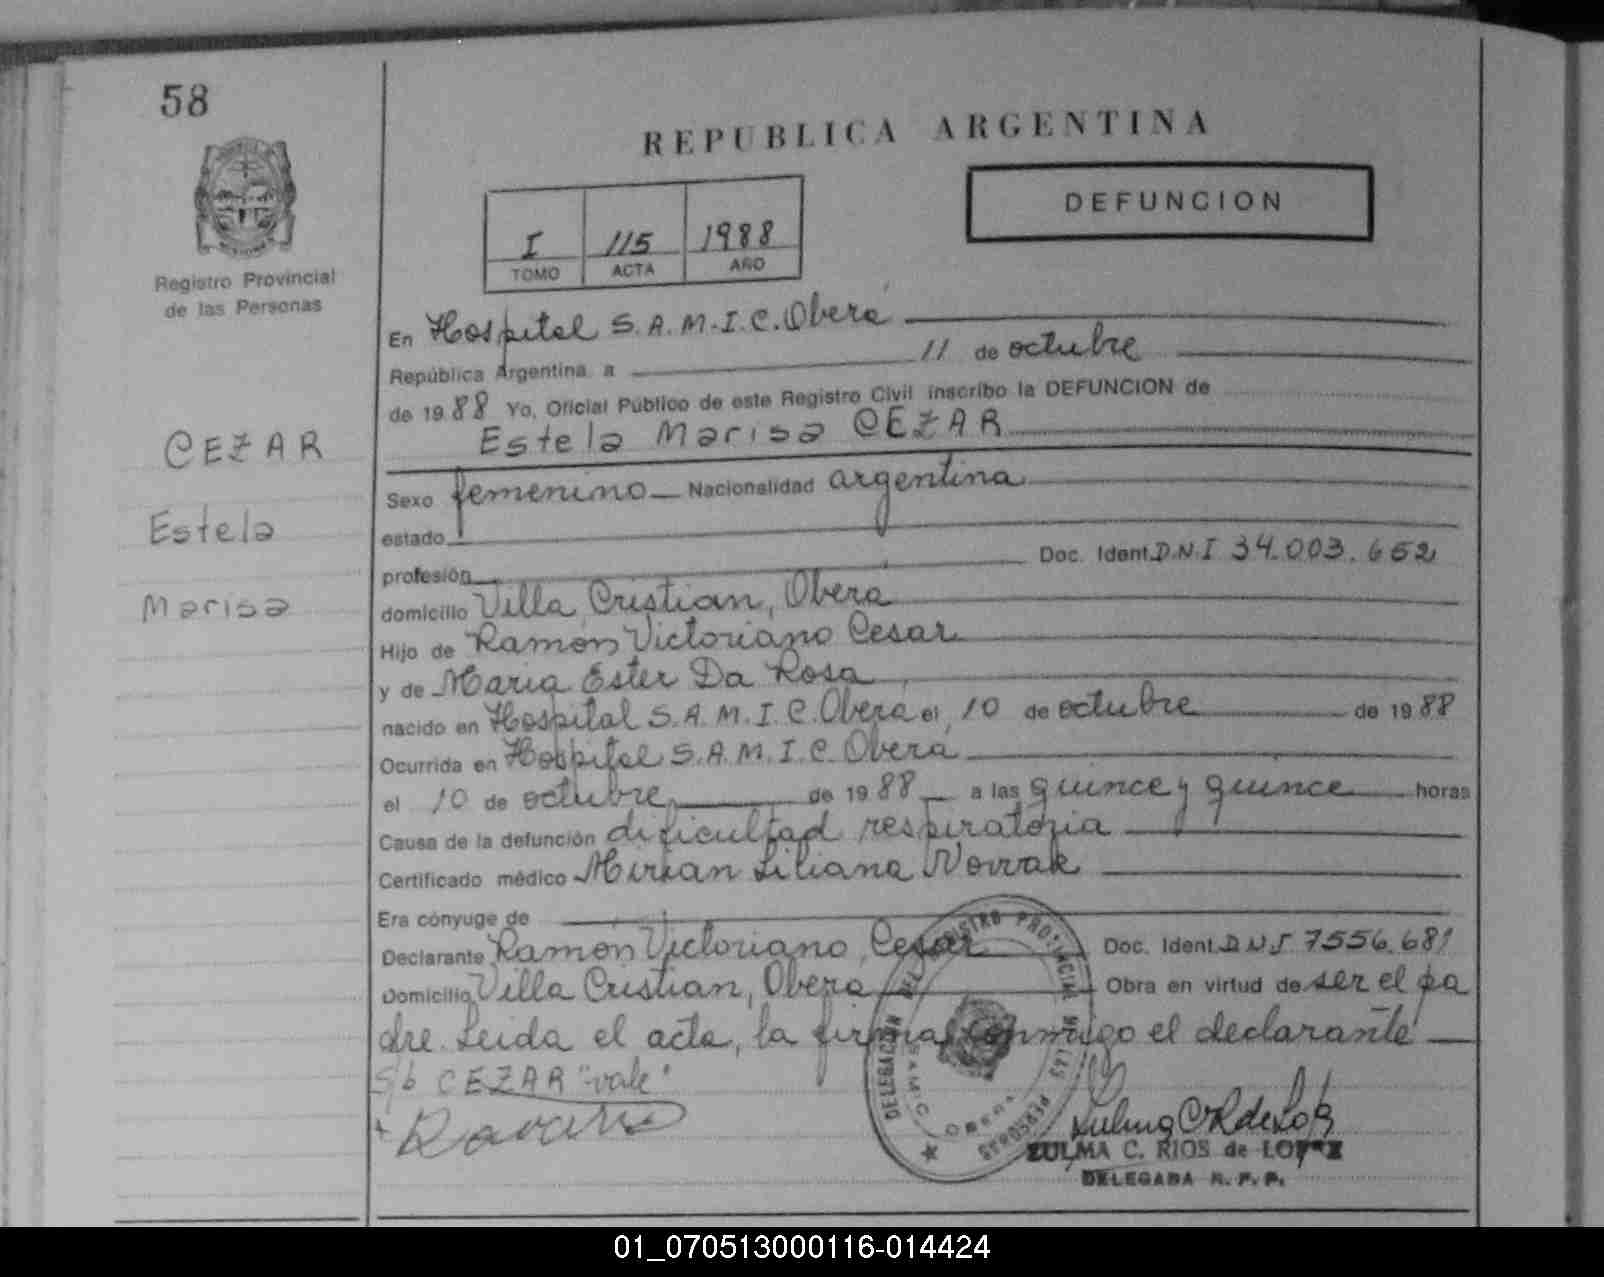 58
REPUBLICA ARGENTINA
DEFUNCION
Registro Provincial
de las Personas
I 115 1988
TOMO ACTA AÑO
CEZAR
Estela
Marisa
En Hospital S.A.M.I.C. Oberá
República Argentina a 11 de octubre
de 1988 Yo, Oficial Público de este Registro Civil inscribo la DEFUNCION de
Estela Marisa CEZAR
Sexo femenino Nacionalidad argentina
estado
profesión Doc. Ident. D.N.I 34.003.652
domicilio Villa Cristian, Oberá
Hijo de Ramón Victoriano Cesar
y de Maria Ester Da Rosa
nacido en Hospital S.A.M.I.C. Oberá el 10 de octubre de 1988
Ocurrida en Hospital S.A.M.I.C. Oberá
el 10 de octubre de 1988 a las quince y quince horas
Causa de la defunción dificultad respiratoria
Certificado médico Mirian Liliana Novrak
Era cónyuge de
Declarante Ramón Victoriano Cesar Doc. Ident. D.N.I 7556.681
Domicilio Villa Cristian, Oberá Obra en virtud de ser el pa
dre. Leida el acta, la firma conmigo el declarante
s/b CEZAR "vale"
DELEGACION DEL REGISTRO PROVINCIAL DE LAS PERSONAS
S.A.M.I.C.
OBERA
ZULMA C. RIOS de LOPEZ
DELEGADA R. P. P.
01_070513000116-014424